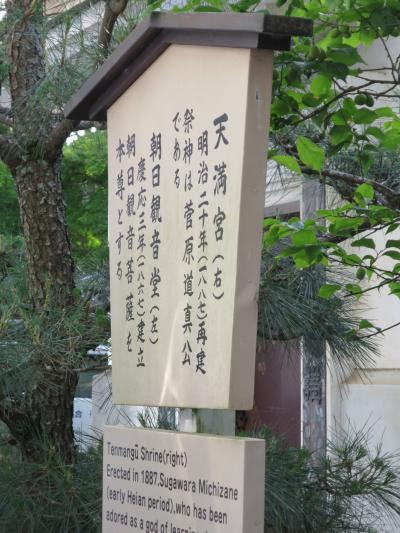 天満宮(右)
明治二十年(一八八七)再建
祭神は菅原道真公
である
朝日観音堂(左)
慶応三年(一八六七)建立
朝日観音菩薩を
本尊とする
Tenmangū Shrine(right)
Erected in 1887.Sugawara Michizane
(early Heian period),who has been
adored as a god of learning